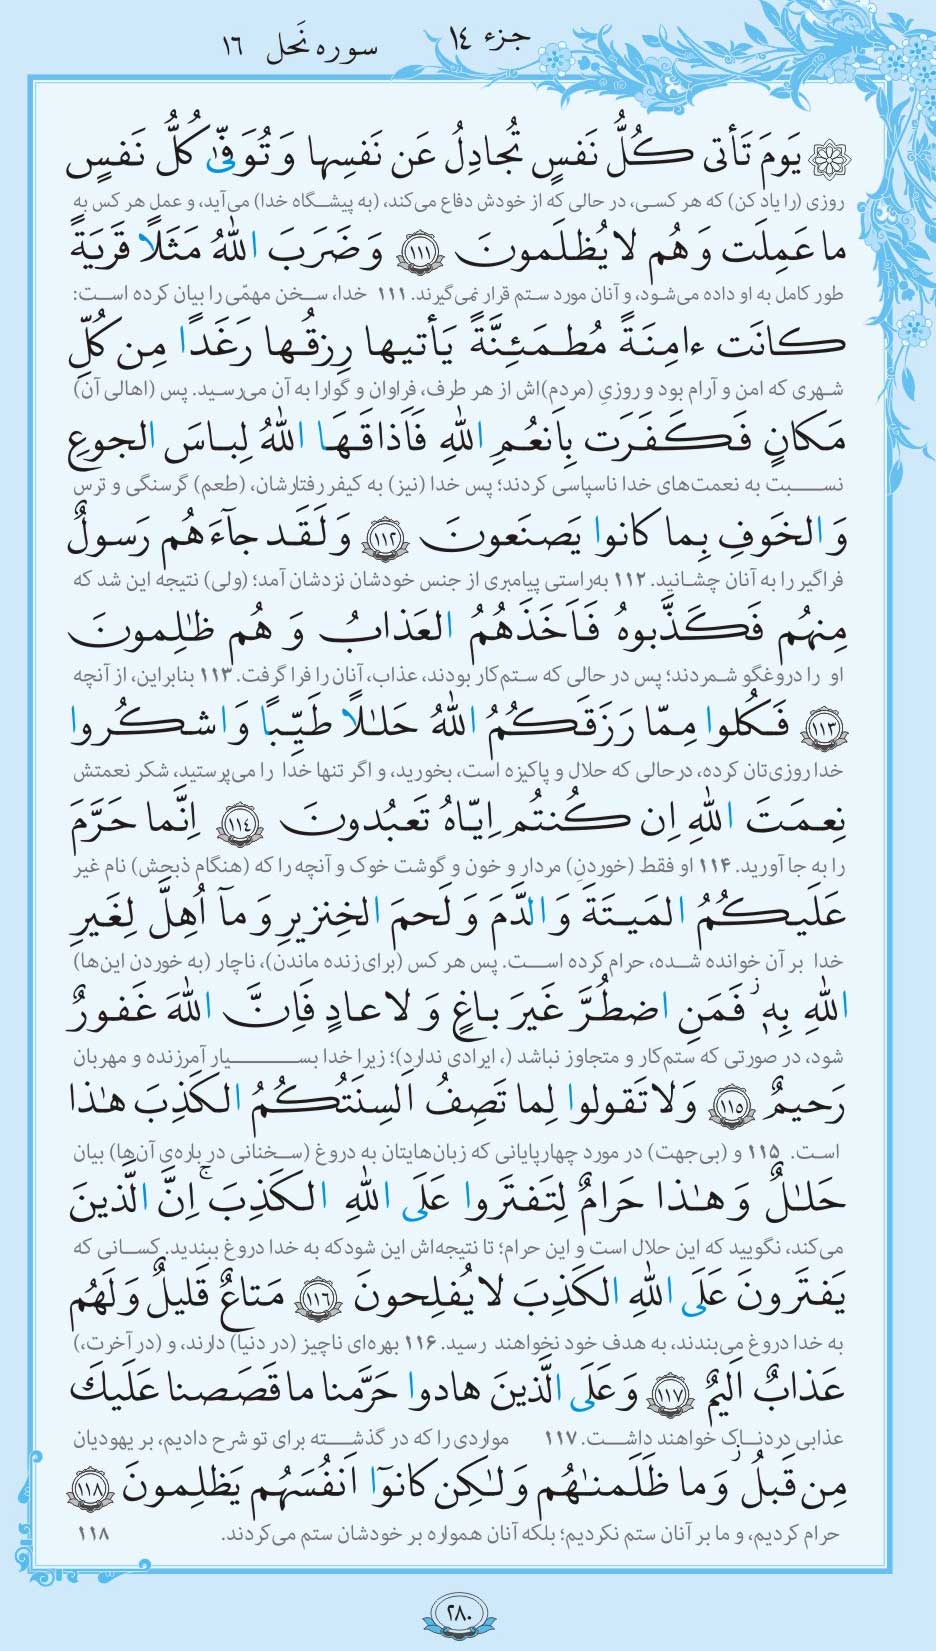 جزء ١٤
سوره نَحل ١٦
يَومَ تَأتی كُلُّ نَفسٍ تُجادِلُ عَن نَفسِها وَ تُوَفّىٰ كُلُّ نَفسٍ
روزی (را یاد کن) که هر کسی، در حالی که از خودش دفاع می‌کند، (به پیشگاه خدا) می‌آید، و عمل هر کس به
ما عَمِلَت وَ هُم لا يُظلَمونَ ١١١ وَ ضَرَبَ اللّٰهُ مَثَلًا قَريَةً
طور کامل به او داده می‌شود، و آنان مورد ستم قرار نمی‌گیرند. ۱۱۱ خدا، سخن مهمّی را بیان کرده است:
كانَت ءامِنَةً مُطمَئِنَّةً يَأتيها رِزقُها رَغَدًا مِن كُلِّ
شهری که امن و آرام بود و روزیِ (مردم)اش از هر طرف، فراوان و گوارا به آن می‌رسید. پس (اهالی آن)
مَكانٍ فَكَفَرَت بِاَنعُمِ اللّٰهِ فَاَذاقَهَا اللّٰهُ لِباسَ الجوعِ
نسبت به نعمت‌های خدا ناسپاسی کردند؛ پس خدا (نیز) به کیفر رفتارشان، (طعم) گرسنگی و ترس
وَ الخَوفِ بِما كانوا يَصنَعونَ ١١٢ وَ لَقَد جآءَهُم رَسولٌ
فراگیر را به آنان چشانید. ۱۱۲ به‌راستی پیامبری از جنس خودشان نزدشان آمد؛ (ولی) نتیجه این شد که
مِنهُم فَكَذَّبوهُ فَاَخَذَهُمُ العَذابُ وَ هُم ظٰلِمونَ
او را دروغگو شمردند؛ پس در حالی که ستم‌کار بودند، عذاب، آنان را فرا گرفت. ۱۱۳ بنابراین، از آنچه
١١٣ فَكُلوا مِمّا رَزَقَكُمُ اللّٰهُ حَلٰلًا طَيِّبًا وَ اشكُروا
خدا روزی‌تان کرده، درحالی که حلال و پاکیزه است، بخورید، و اگر تنها خدا را می‌پرستید، شکر نعمتش
نِعمَتَ اللّٰهِ اِن كُنتُم اِيّاهُ تَعبُدونَ ١١٤ اِنَّما حَرَّمَ
را به جا آورید. ۱۱۴ او فقط (خوردنِ) مردار و خون و گوشت خوک و آنچه را که (هنگام ذبحش) نام غیر
عَلَيكُمُ المَيتَةَ وَ الدَّمَ وَ لَحمَ الخِنزيرِ وَ مآ اُهِلَّ لِغَيرِ
خدا بر آن خوانده شده، حرام کرده است. پس هر کس (برای زنده ماندن)، ناچار (به خوردن این‌ها)
اللّٰهِ بِهٖ ۖ فَمَنِ اضطُرَّ غَيرَ باغٍ وَ لا عادٍ فَاِنَّ اللّٰهَ غَفورٌ
شود، در صورتی که ستم‌کار و متجاوز نباشد (، ایرادی ندارد)؛ زیرا خدا بسیار آمرزنده و مهربان
رَحيمٌ ١١٥ وَ لا تَقولوا لِما تَصِفُ اَلسِنَتُكُمُ الكَذِبَ هٰذا
است. ۱۱۵ و (بی‌جهت) در مورد چهارپایانی که زبان‌هایتان به دروغ (سخنانی در باره‌ی آن‌ها) بیان
حَلٰلٌ وَ هٰذا حَرامٌ لِتَفتَروا عَلَى اللّٰهِ الكَذِبَ ۚ اِنَّ الَّذينَ
می‌کند، نگویید که این حلال است و این حرام؛ تا نتیجه‌اش این شود که به خدا دروغ ببندید. کسانی که
يَفتَرونَ عَلَى اللّٰهِ الكَذِبَ لا يُفلِحونَ ١١٦ مَتاعٌ قَليلٌ وَ لَهُم
به خدا دروغ می‌بندند، به هدف خود نخواهند رسید. ۱۱۶ بهره‌ای ناچیز (در دنیا) دارند، و (در آخرت،)
عَذابٌ اَليمٌ ١١٧ وَ عَلَى الَّذينَ هادوا حَرَّمنا ما قَصَصنا عَلَيكَ
عذابی دردناک خواهند داشت. ۱۱۷ مواردی را که در گذشته برای تو شرح دادیم، بر یهودیان
مِن قَبلُ ۖ وَ ما ظَلَمنٰهُم وَ لٰكِن كانوٓا اَنفُسَهُم يَظلِمونَ ١١٨
حرام کردیم، و ما بر آنان ستم نکردیم؛ بلکه آنان همواره بر خودشان ستم می‌کردند. ۱۱۸
٢٨٠